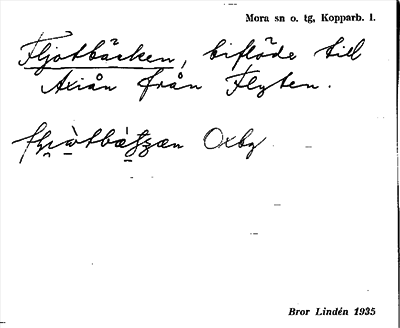 Mora sn o. tg, Kopparb. l.
Fljotbäcken, biflöde till
Axiån från Flyten.
Oxby
Bror Lindén 1935